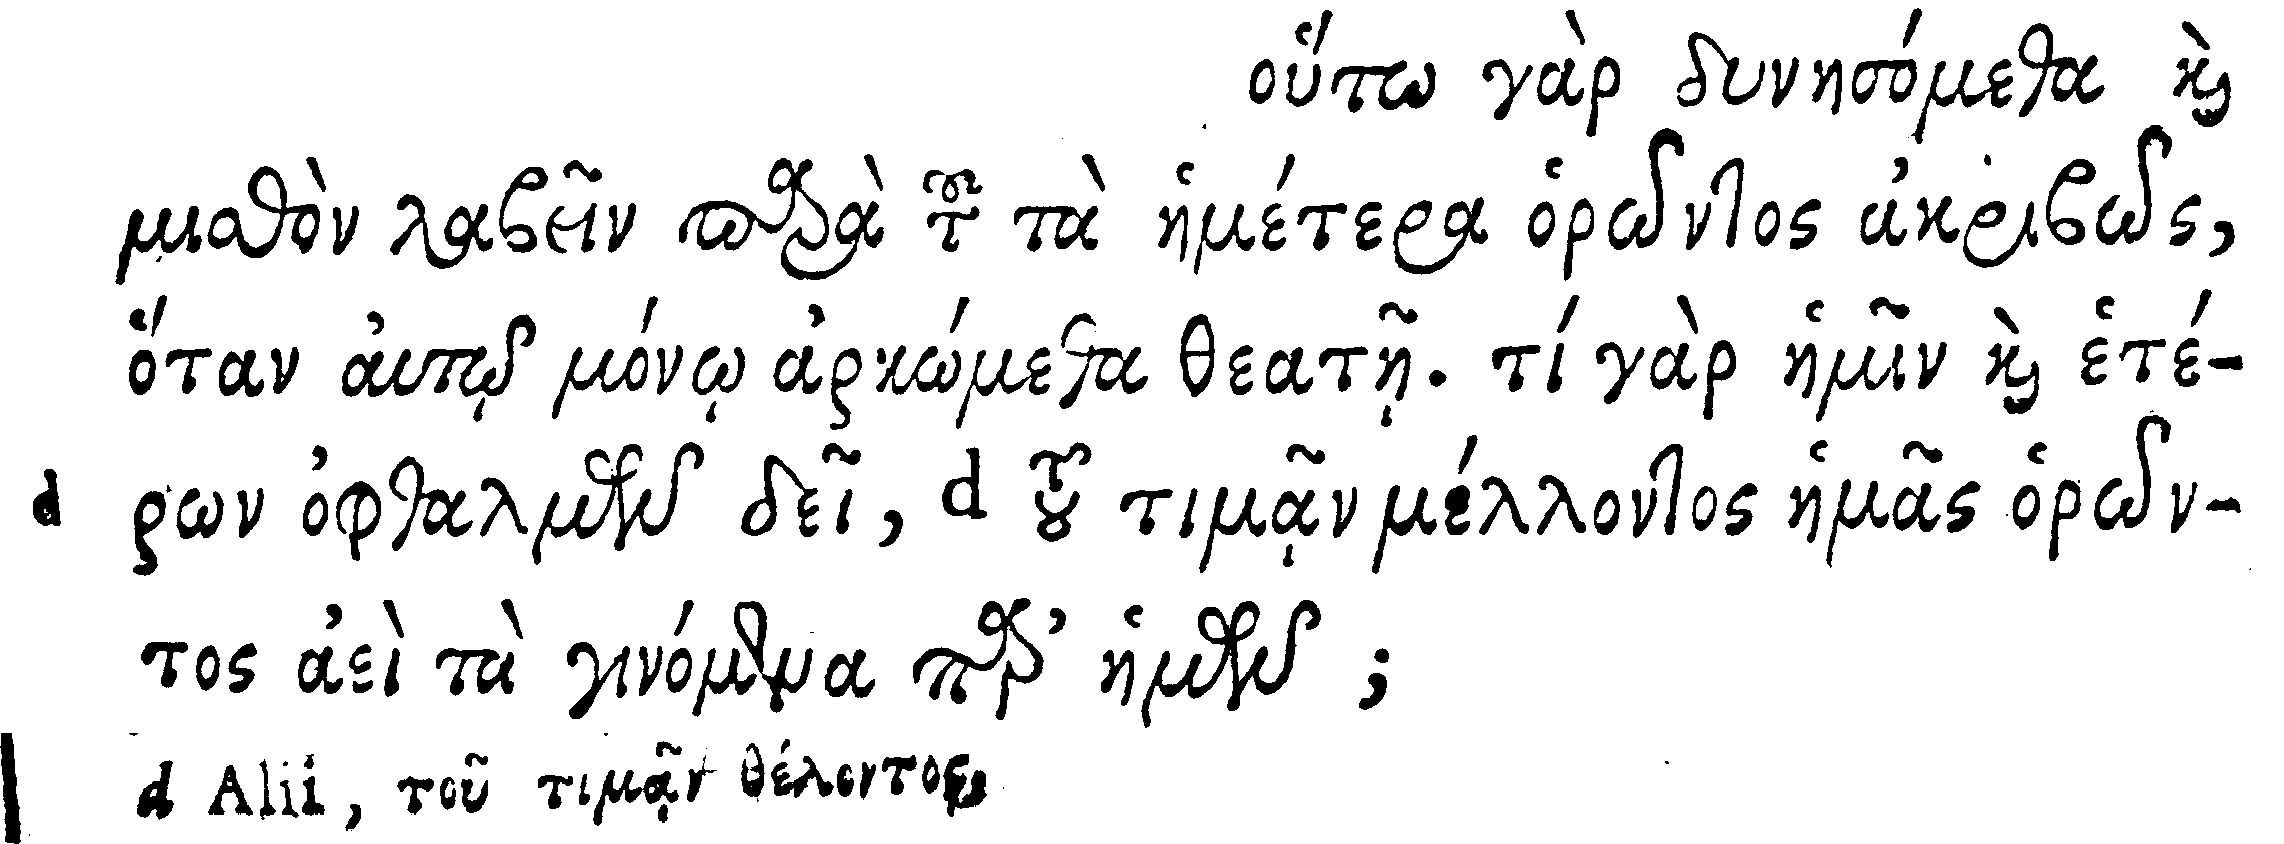 οὕτω γὰρ δυνησόμεθα καὶ
μισθὸν λαβεῖν παρὰ τοῦ τὰ ἡμέτερα ὁρῶντος ἀκριβῶς,
ὅταν αὐτῷ μόνῳ ἀρκώμεθα θεατῇ. τί γὰρ ἡμῖν καὶ ἑτέ-
d ρων ὀφθαλμῶν δεῖ, d τοῦ τιμᾷν μέλλοντος ἡμᾶς ὁρῶν-
τος ἀεὶ τὰ γινόμενα παρ’ ἡμῶν ;
d Alii, τοῦ τιμᾷν θέλοντος,